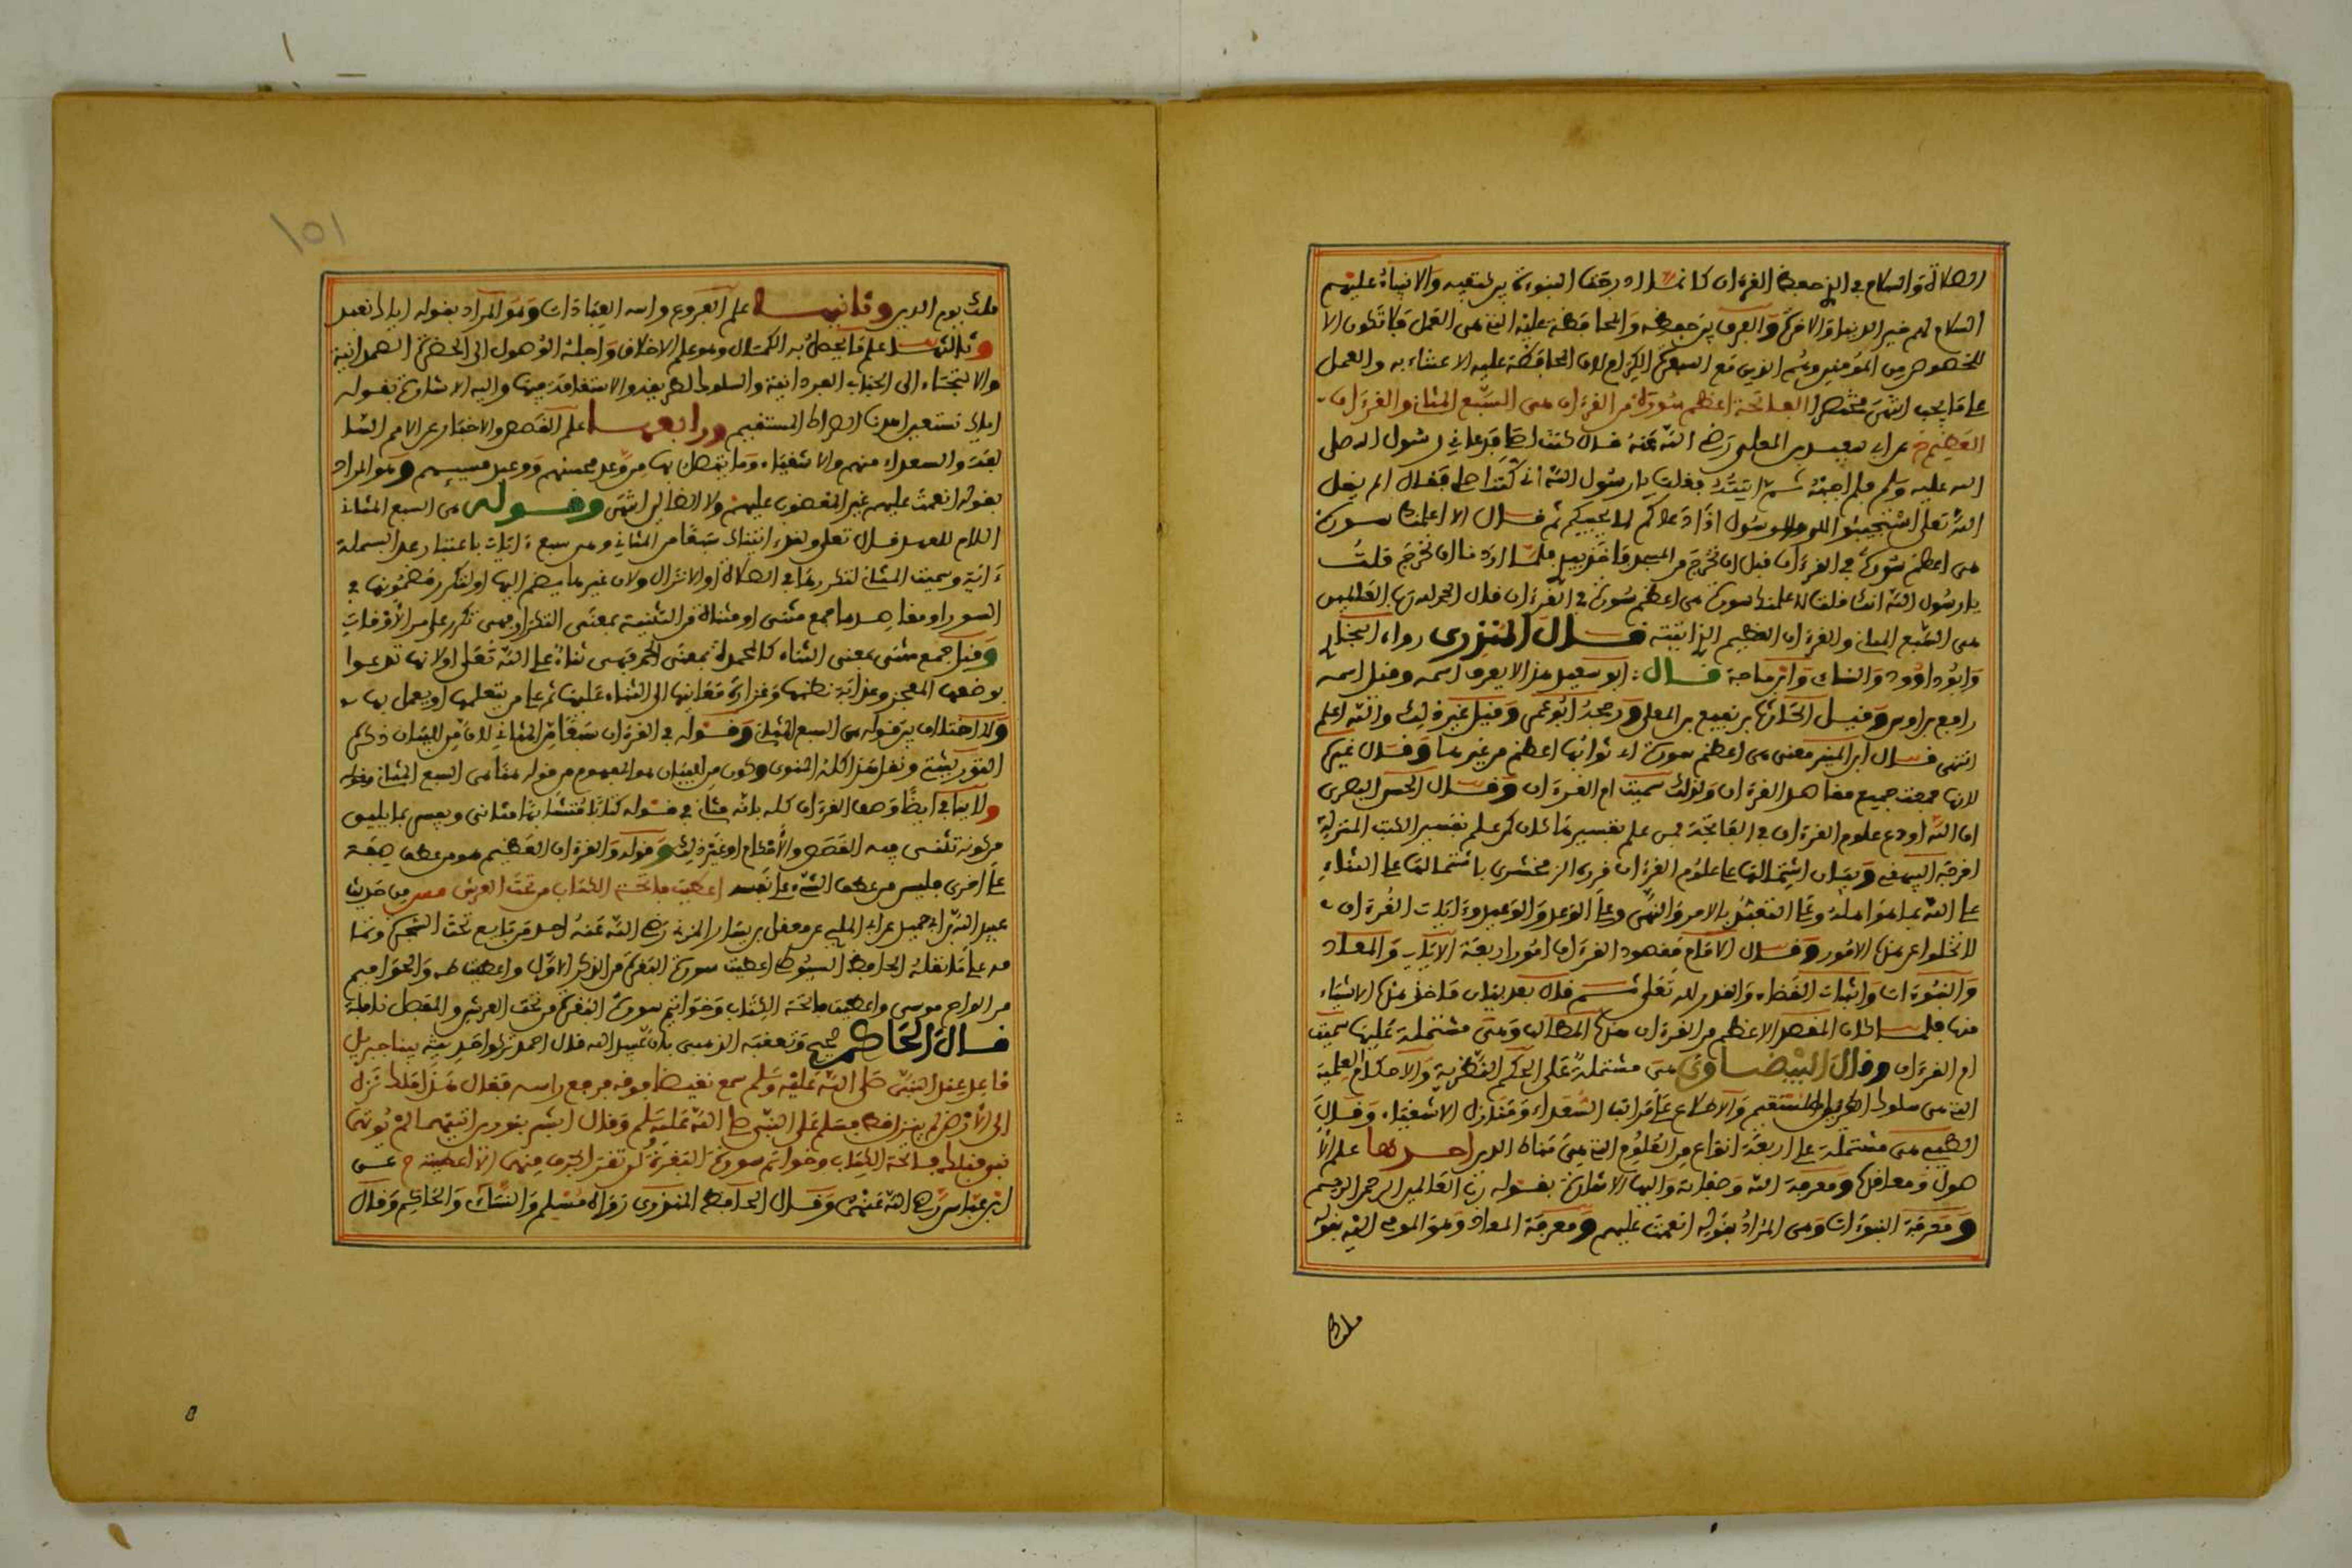 الصلاة والسلام في ان حفظ القرءان كانما ادرجت النبوءة بين كتفيه والانبياء عليهم
السلام لهم خير الدنيا والاخرة والفرق بين حفظه والمحافظة عليه التي هي العمل فلا تكون الا
للخصوص من المؤمنين وهم الذين مع السفرة الكرام لان المحافظة عليه الاعتناء به والعمل
على ما يجب انتهى مختصرا الفاتحة اعظم سورة من القرءان هي السبع المثاني والقرءان
العظيم خ عن ابي سعيد بن المعلى رضي الله عنه قال كنت اصلي فدعاني رسول الله صلى
الله عليه وسلم فلم اجبه ثم اتيته فقلت يا رسول الله اني كنت اصلي فقال الم يقل
الله تعالى استجيبوا لله وللرسول اذا دعاكم لما يحييكم ثم قال الا اعلمك سورة
هي اعظم سورة في القرءان قبل ان تخرج من المسجد فاخذ بيدي فلما اردنا ان نخرج قلت
يا رسول الله انك قلت لاعلمنك سورة هي اعظم سورة في القرءان قال الحمد لله رب العالمين
هي السبع المثاني والقرءان العظيم الذي اوتيته قال المنذري رواه البخاري
وابو داوود والنسائي وابن ماجة قال ابو سعيد هذا لا يعرف اسمه وقيل اسمه
رافع بن اوس وقيل الحارث بن نفيع بن المعلى ورجحه ابو عمر وقيل غير ذلك والله اعلم
انتهى قال ابن المنير معنى هي اعظم سورة اي ثوابها اعظم من غيرها وقال غيره
لانها جمعت جميع مقاصد القرءان ولذلك سميت ام القرءان وقال الحسن البصري
ان الله اودع علوم القرءان في الفاتحة فمن علم تفسيرها كان كمن علم تفسير الكتب المنزلة
اخرجه البيهقي وبيان اشتمالها على علوم القرءان قرره الزمخشري باشتمالها على الثناء
على الله بما هو اهله وعلى التعبد بالامر والنهي وعلى الوعد والوعيد وءايات القرءان
لا تخلوا عن هذه الامور وقال الامام مقصود القرءان امور اربعة الالاهيات والمعاد
والنبوءات واثبات القضاء والقدر لله تعالى ثم قال بعد بيان ماخذ هذه الاشياء
منها فلما كان المقصد الاعظم من القرءان هذه المطالب وهي مشتملة عليها سميت
ام القرءان وقال البيضاوي هي مشتملة على الحكم النظرية والاحكام العلمية
التي هي سلوك الطريق المستقيم والاطلاع على مراتب السعداء ومنازل الاشقياء وقال
الطيبي هي مشتملة على اربعة انواع من العلوم التي هي مناط الدين احدها علم الا
صول ومعاقدها ومعرفة الله وصفاته واليها الاشارة بقوله رب العالمين الرحمن الرحيم
ومعرفة النبوءات وهي المراد بقوله انعمت عليهم ومعرفة المعاد وهو المومى اليه بقوله
ملك
١٥١
ملك يوم الدين وثانيها علم الفروع واسه العبادات وهو المراد بقوله اياك نعبد
وثالثها علم ما يحصل به الكمال وهو علم الاخلاق واجله الوصول الى الحضرة الصمدانية
والالتجاء الى الجناب الفردانية والسلوك لطريقه والاستقامة فيها واليه الاشارة بقوله
اياك نستعين اهدنا الصراط المستقيم ورابعها علم القصص والاخبار عن الامم السا
لفة والسعداء منهم والاشقياء وما يتصل بها من وعد محسنهم ووعيد مسيئهم وهو المراد
بقوله انعمت عليهم غير المغضوب عليهم ولا الضالين انتهى وقوله هي السبع المثاني
اللام للعهد قال تعالى ولقد اتيناك سبعا من المثاني وهي سبع ءايات باعتبار عد البسملة
ءاية وسميت المثاني لتكررها في الصلاة او الانزال ولان غيرها يضم اليها او لتكرر مضمونها في
السور او مقاصدها جمع مثنى او مثناة من التثنية بمعنى التكرار فهي تكرر على مر الاوقات
وقيل جمع مثنى بمعنى الثناء كالمحمدة بمعنى الحمد فهي ثناء على الله تعالى او لانها تدعوا
بوصفها المعجز وغرابة نظمها وغزارة معانيها الى الثناء عليها ثم على من يتعلمها او يعمل بها
ولا اختلاف بين قوله هي السبع المثاني وقوله في القرءان سبعا من المثاني لان من للبيان ذكره
التوربشتي ونقل هذا كله المناوي وكون من للبيان هو المفهوم من قوله هنا هي السبع المثاني وقوله
ولا ينافي ايضا وصف القرءان كله بانه مثان في قوله كتابا متشابها مثاني ويفسر بما يليق
من كونه تثنى فيه القصص والاحكام او غير ذلك وقوله والقرءان العظيم هو من عطف صفة
على اخرى فليس من عطف الشيء على نفسه اعطيت فاتحة الكتاب من تحت العرش من حديث
عبيد الله بن ابي حميد عن ابي المليح عن معقل بن يسار المزني رضي الله عنه احد من بايع تحت الشجرة وتما
مه على ما نقله الحافظ السيوطي اعطيت سورة البقرة من الذكر الاول واعطيت طه والحواميم
من الواح موسى واعطيت فاتحة الكتاب وخواتم سورة البقرة من تحت العرش والمفصل نافلة
قال الحاكم صحيح وتعقبه الذهبي بان عبيد الله قال احمد تركوا حديثه بينا جبريل
قاعد عند النبي صلى الله عليه وسلم سمع نقيضا من فوقه فرفع راسه فقال هذا ملك نزل
الى الارض لم ينزل قط فسلم على النبي صلى الله عليه وسلم وقال ابشر بنورين اتيتهما لم يوتهما
نبي قبلك فاتحة الكتاب وخواتم سورة البقرة لن تقرا بحرف منهما الا اعطيته م عن
ابن عباس رضي الله عنهما وقال الحافظ المنذري رواه مسلم والنسائي والحاكم وقال